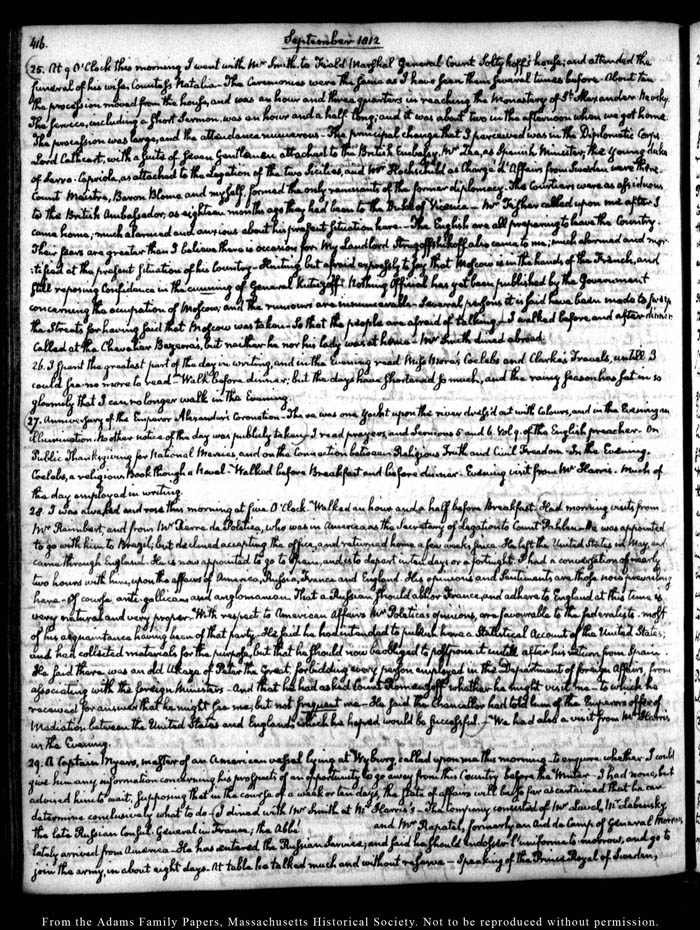 416.
September 1812
25. At 9 O'Clock this morning I went with Mr Smith to Field Marshal General Count Soltykoff's house; and attended the
funeral of his wife, Countess Natalia. The Ceremonies were the same as I have seen them several times before. About ten
the procession moved from the house, and was an hour and three quarters in reaching the Monastery of St Alexander Nevsky.
The Service, including a short Sermon, was an hour and a half long; and it was about two in the afternoon when we got home.
The procession was large, and the attendance numerous. The principal change that I perceived was in the Diplomatic Corps.
Lord Cathcart, with a suite of seven Gentlemen attached to the British Embassy, Mr Zea, as Spanish Minister, the Young duke
of Serra-Capriola, as attached to the Legation of the two Sicilies, and Mr Hochschild as Chargé d'Affairs from Sweden were there.
Count Maistre, Baron Blome and myself, formed the only remnants of the former diplomacy. The Courtiers were as assiduous
to the British Ambassador, as eighteen months ago they had been to the Duke of Vicenza. Mr Fisher called upon me after I
came home; much alarmed and anxious about his present situation here. The English are all preparing to leave the Country.
Their fears are greater than I believe there is occasion for. My Landlord Strogoffshikoff also came to me; much alarmed and mor-
tified at the present situation of his Country. Hinting but afraid expressly to say that Moscow is in the hands of the French, and
still reposing Confidence in the cunning of General Kutuzoff. Nothing Official has yet been published by the Government
concerning the occupation of Moscow, and the rumours are innumerable. Several persons it is said have been made to sweep
the Streets for having said that Moscow was taken. So that the people are afraid of talking. I walked before and after dinner
Called at the Chevalier Bezerra's, but neither he nor his lady, was at home. Mr Smith dined abroad.
26. I spent the greatest part of the day in writing, and in the Evening read Miss More's Coelebs and Clarke's Travels, untill I
could see no more to read. Walk before dinner; but the days have shortened so much, and the rainy season has set in so
gloomily that I can no longer walk in the Evening.
27. Anniversary of the Emperor Alexander's Coronation. There was one Yacht upon the river dress'd out with Colours, and in the Evening an
illumination. No other notice of the day was publicly taken. I read prayers, and Sermons 5 and 6. Vol 9. of the English preacher. On
Public Thanksgiving for National Mercies, and on the Connection between Religious Truth and Civil Freedom. In the Evening,
Coelebs, a religious Book though a Novel. Walked before Breakfast and before dinner. Evening visit from Mr Harris. Much of
the day employed in writing.
28. I was awaked and rose this morning at five O'Clock. Walked an hour and a half before Breakfast. Had morning visits from
Mr Raimbert, and from Mr Pierre de Poletica, who was in America as the Secretary of Legation to Count Pahlen. He was appointed
to go with him to Brazil; but declined accepting the office, and returned home a few weeks since. He left the United States in May, and
came through England. He is now appointed to go to Spain, and is to depart in ten days or a fortnight. I had a conversation of nearly
two hours with him, upon the affairs of America, Russia, France and England. His opinions and Sentiments are those now prevailing
here. Of course, anti-gallican, and anglomanian. That a Russian should abhor France, and adhere to England at this time is
very natural and very proper. With respect to American Affairs Mr Poletica's opinions, are favourable to the federalists. most
of his acquaintance having been of that party. He said he had intended to publish here a Statistical Account of the United States,
and had collected materials for the purpose, but that he should now be obliged to postpone it untill after his return from Spain.
He said there was an old Ukaze of Peter the Great, forbidding every person employed in the Department of foreign Affairs, from
associating with the foreign Ministers. And that he had asked Count Romanzoff whether he might visit me. to which he
received for answer that he might see me, but not frequent me. He said the Chancellor had told him of the Emperor's offer of
Mediation between the United States and England; which he hoped would be successful. We had also a visit from Mr Harris
in the Evening.
29. A Captain Myers, master of an American vessel lying at Wyburg, called upon me this morning to enquire whether I could
give him any information concerning his prospects of an opportunity to go away from this Country before the Winter. I had none, but
advised him to wait, supposing that in the course of a week or ten days, the state of affairs will be so far ascertained that he can
determine conclusively what to do. I dined with Mr Smith at Mr Harris's. The Company consisted of Mr Lewis, Mr Labensky
the late Russian Consul-General in France, the Abbé and Mr Rapatel, formerly an Aid de Camp of General Moreau,
lately arrived from America. He has entered the Russian Service, and said he should endosser l'uniforme to-morrow, and go to
join the army, in about eight days. At table he talked much and without reserve. Speaking of the Prince Royal of Sweden,
From the Adams Family Papers, Massachusetts Historical Society. Not to be reproduced without permission.